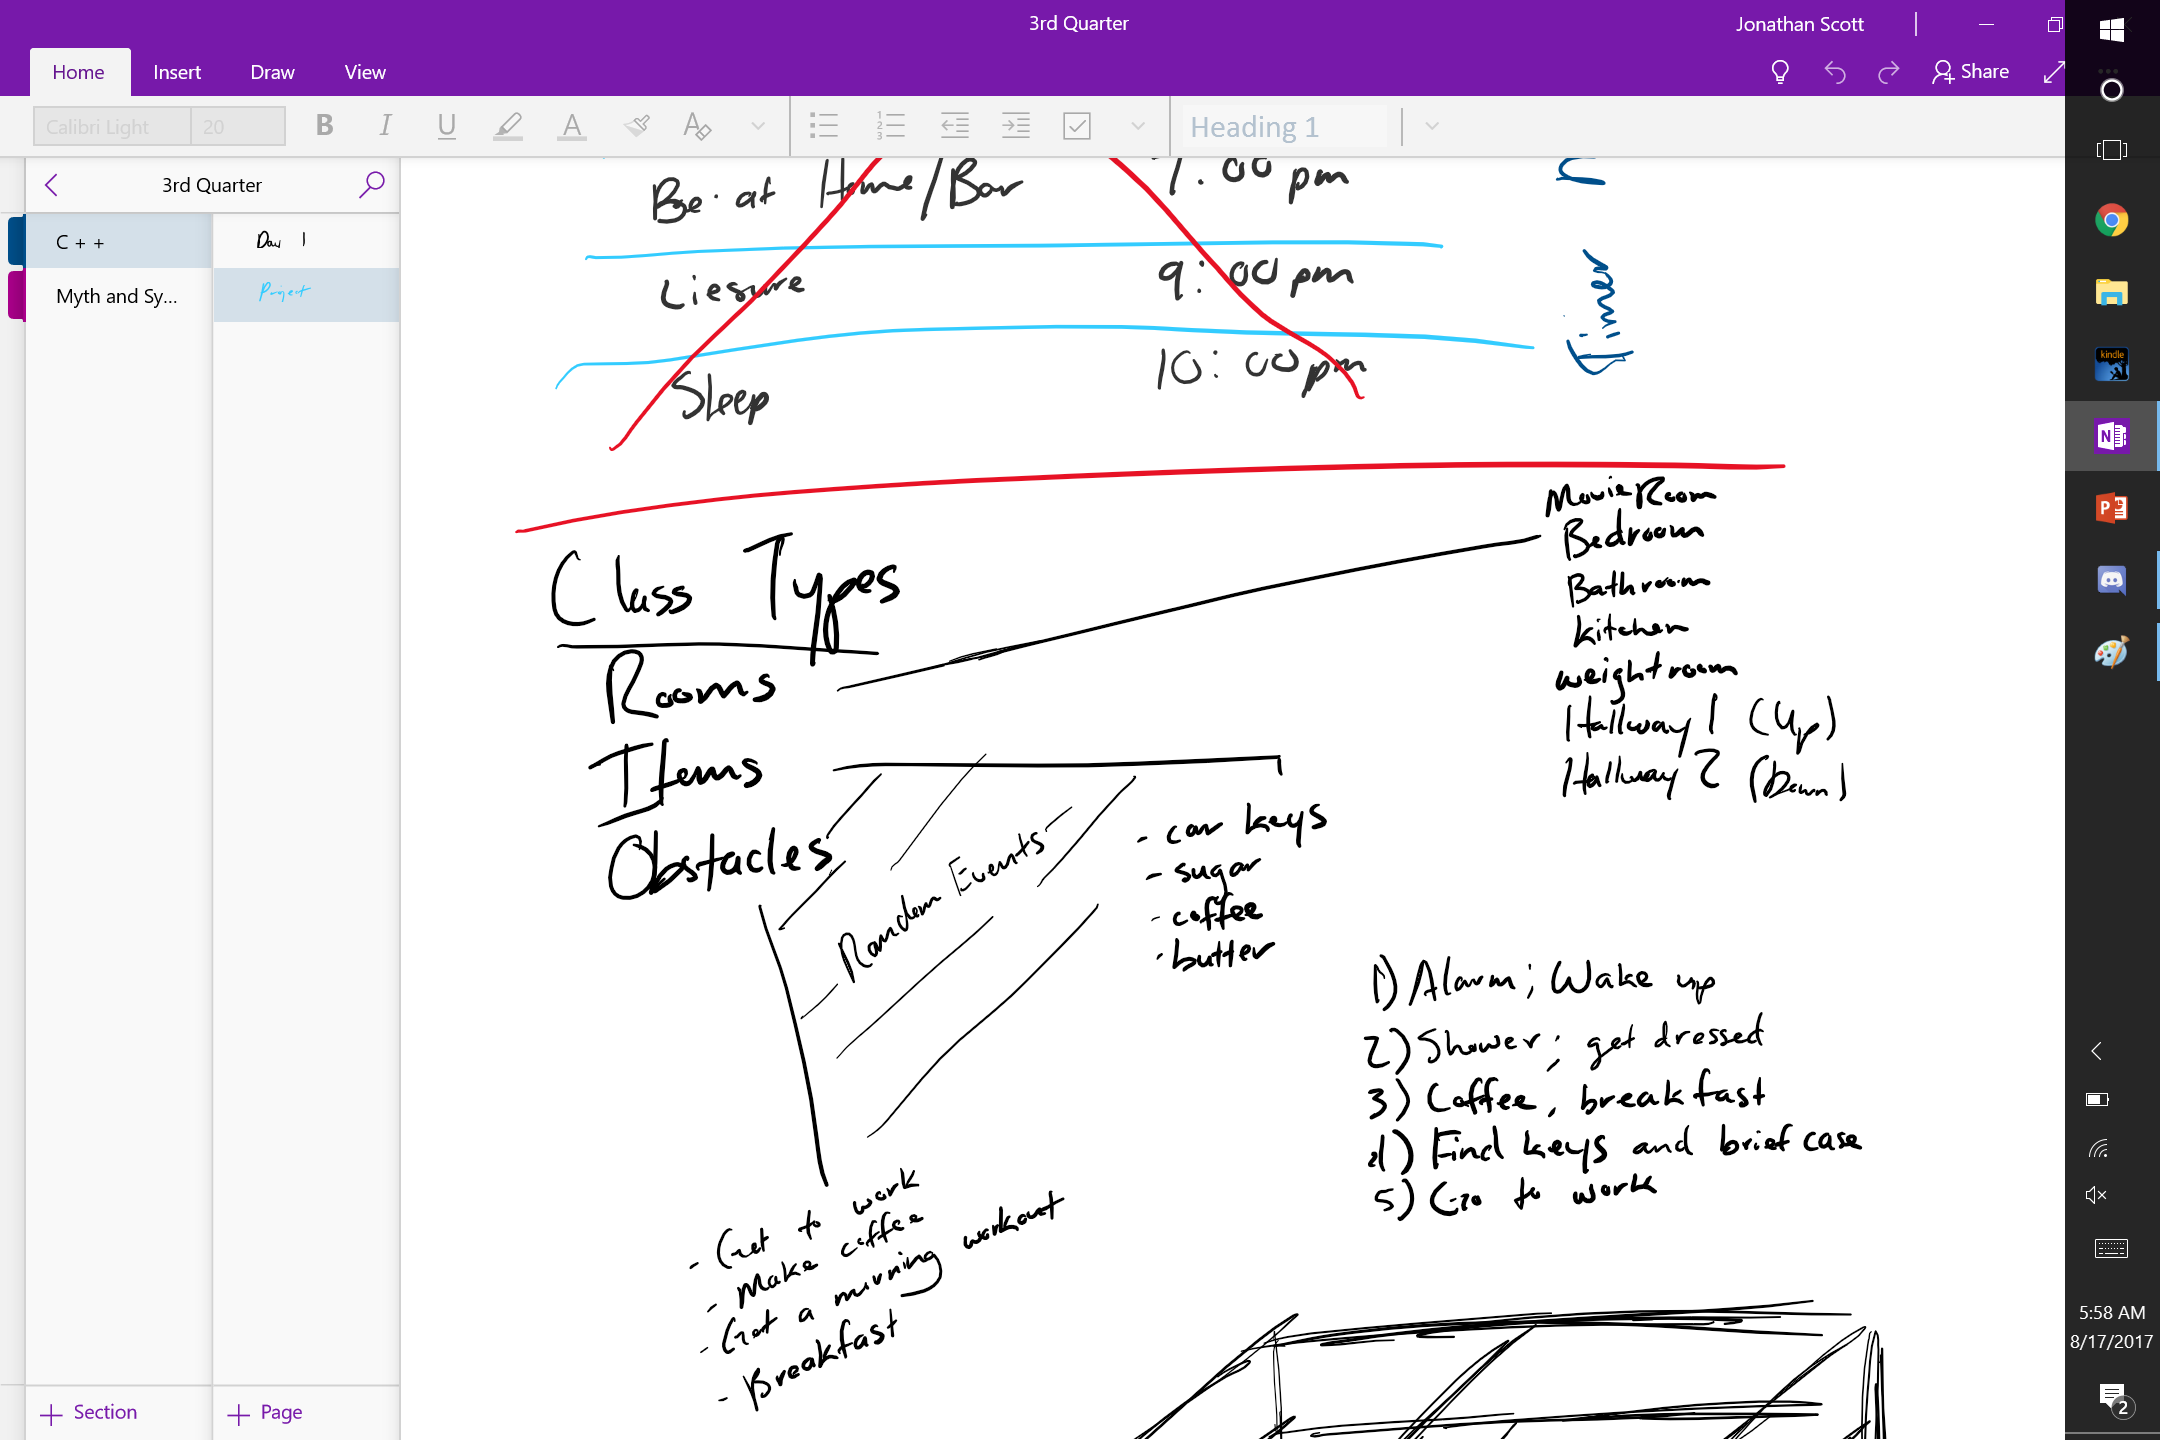 3rd Quarter
Jonathan Scott
Home Insert Draw View
Share
Calibri Light 20
B I U A A
Heading 1
3rd Quarter
C + +
Myth and Sy...
Day 1
Project
Be at Home/Bar :00 pm
Liesure 9:00 pm
Sleep 10:00 pm
Time
Class Types
Rooms
Items
Obstacles
Random Events
Movie Room
Bedroom
Bathroom
kitchen
weightroom
Hallway 1 (Up)
Hallway 2 (Down)
- car keys
- sugar
- coffee
- butter
1) Alarm; Wake up
2) Shower; get dressed
3) Coffee, breakfast
4) Find keys and brief case
5) Go to work
- Get to work
- Make coffee
- Get a morning workout
- Breakfast
+ Section
+ Page
kindle
5:58 AM
8/17/2017
2